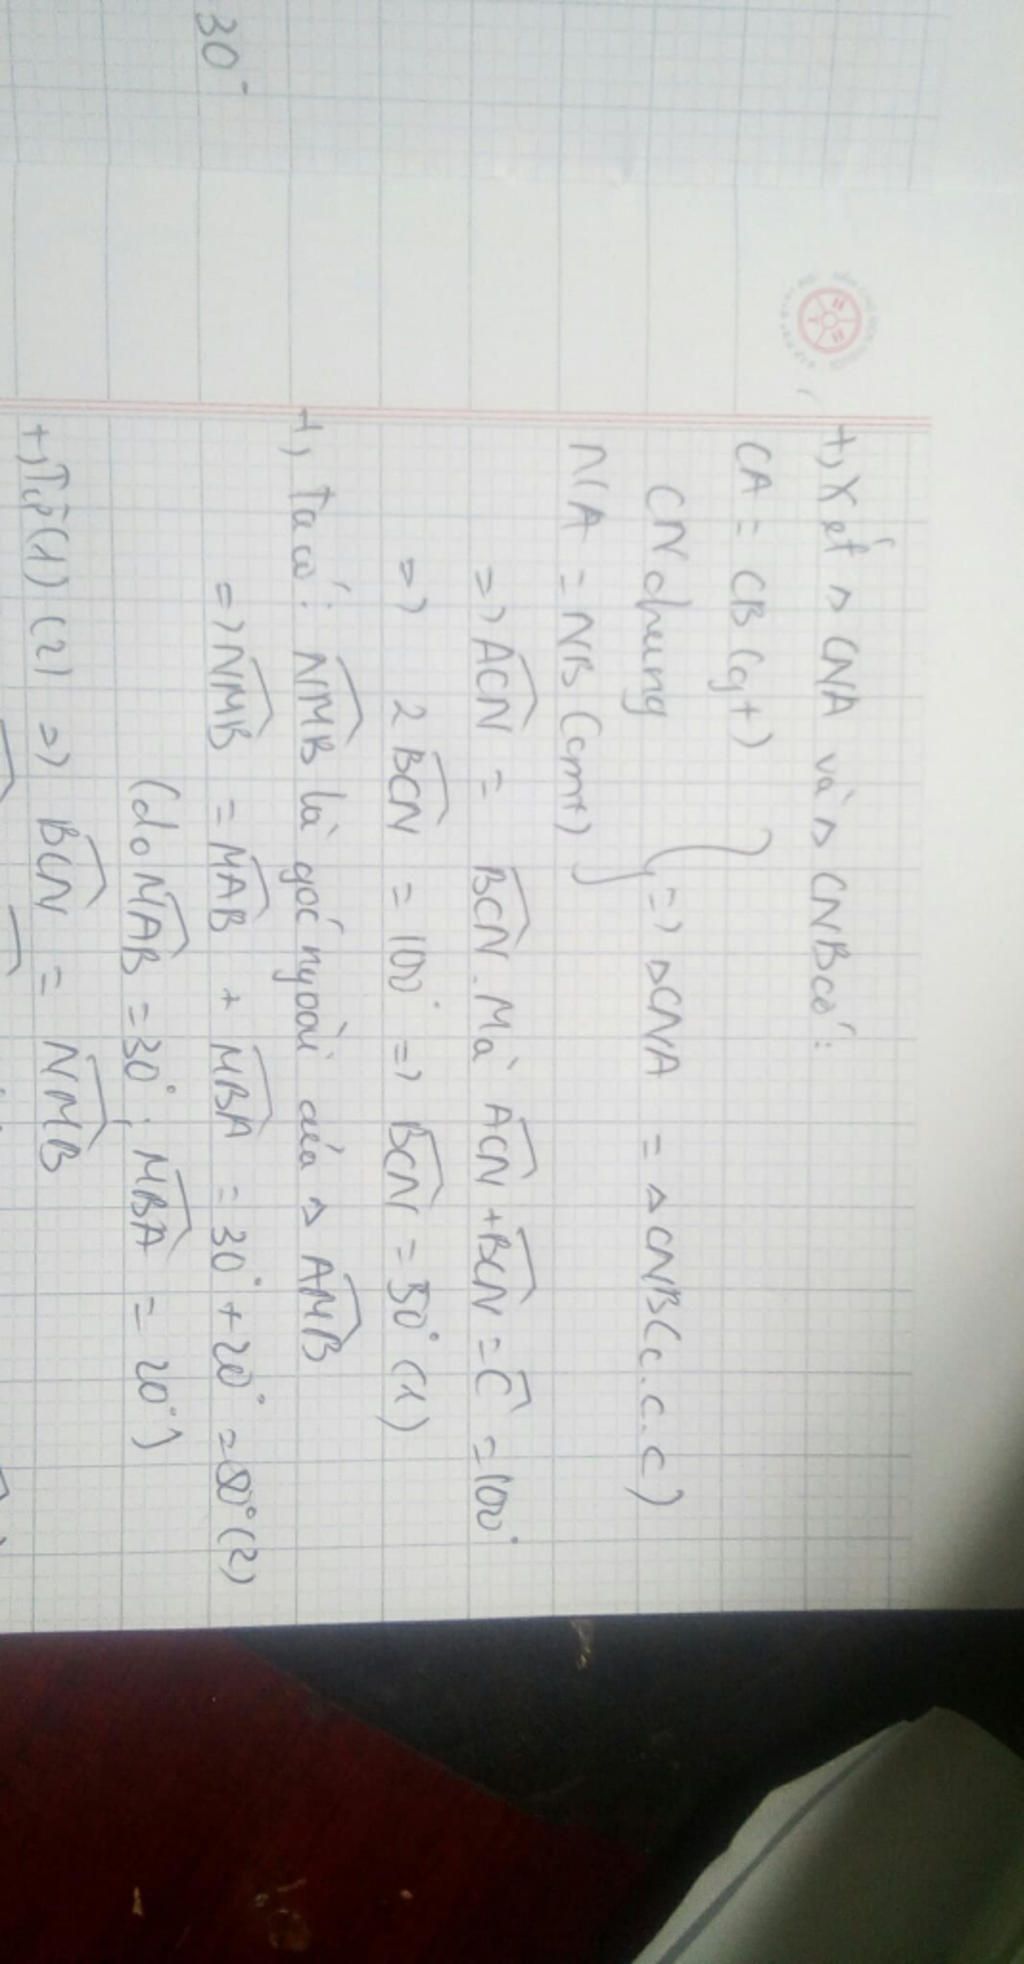 30°
+, Xét △CNA và △CNB có:
CA = CB (gt)
CN chung
NA = NB (cmt) } => △CNA = △CNB (c.c.c)
=> ACN = BCN. Mà ACN + BCN = C = 100°
=> 2 BCN = 100° => BCN = 50° (1)
+, Ta có: NMB là góc ngoài của △ AMB
=> NMB = MAB + MBA = 30° + 20° = 50° (2)
(do MAB = 30°; MBA = 20°)
+, Từ (1) (2) => BCN = NMB